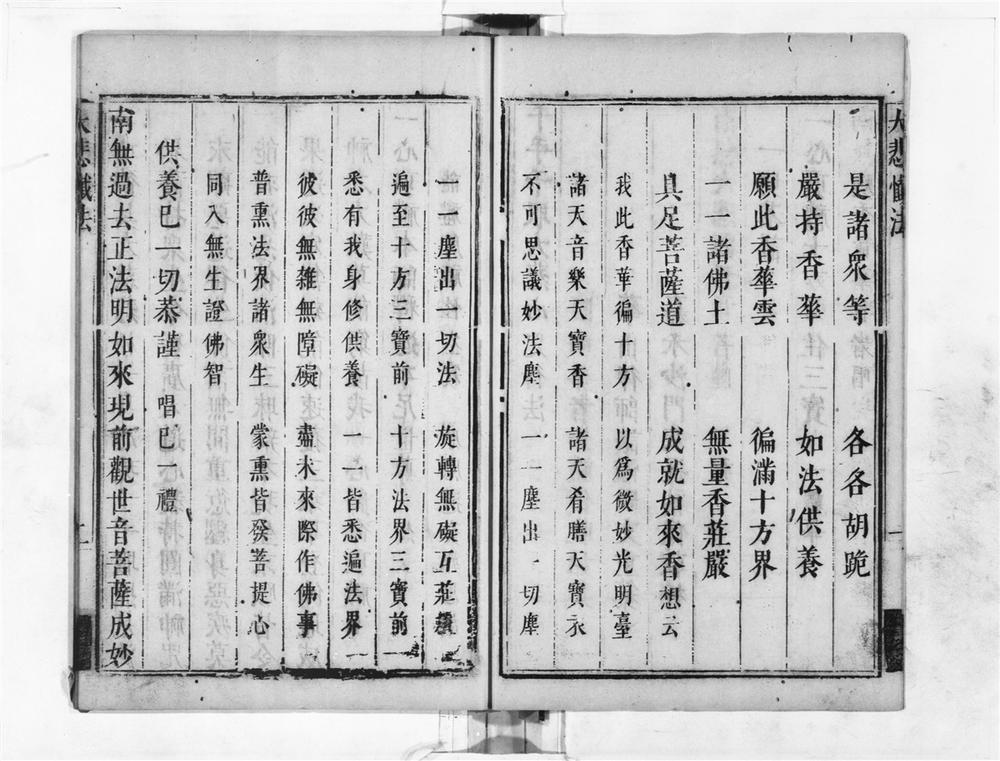 大悲懺法
是諸衆等　各各胡跪
嚴持香華　如法供養
願此香華雲　徧滿十方界
一一諸佛土　無量香莊嚴
具足菩薩道　成就如來香想云
我此香華徧十方　以爲微妙光明臺
諸天音樂天寶香　諸天肴膳天寶衣
不可思議妙法塵　一一塵出一切塵
一一塵出一切法　旋轉無礙互莊嚴
遍至十方三寶前　十方法界三寶前
悉有我身修供養　一一皆悉遍法界
彼彼無雜無障礙　盡未來際作佛事
普熏法界諸衆生　蒙熏皆發菩提心
同入無生證佛智
供養已一切恭謹　唱已一禮
南無過去正法明如來現前觀世音菩薩成妙
大悲懺法